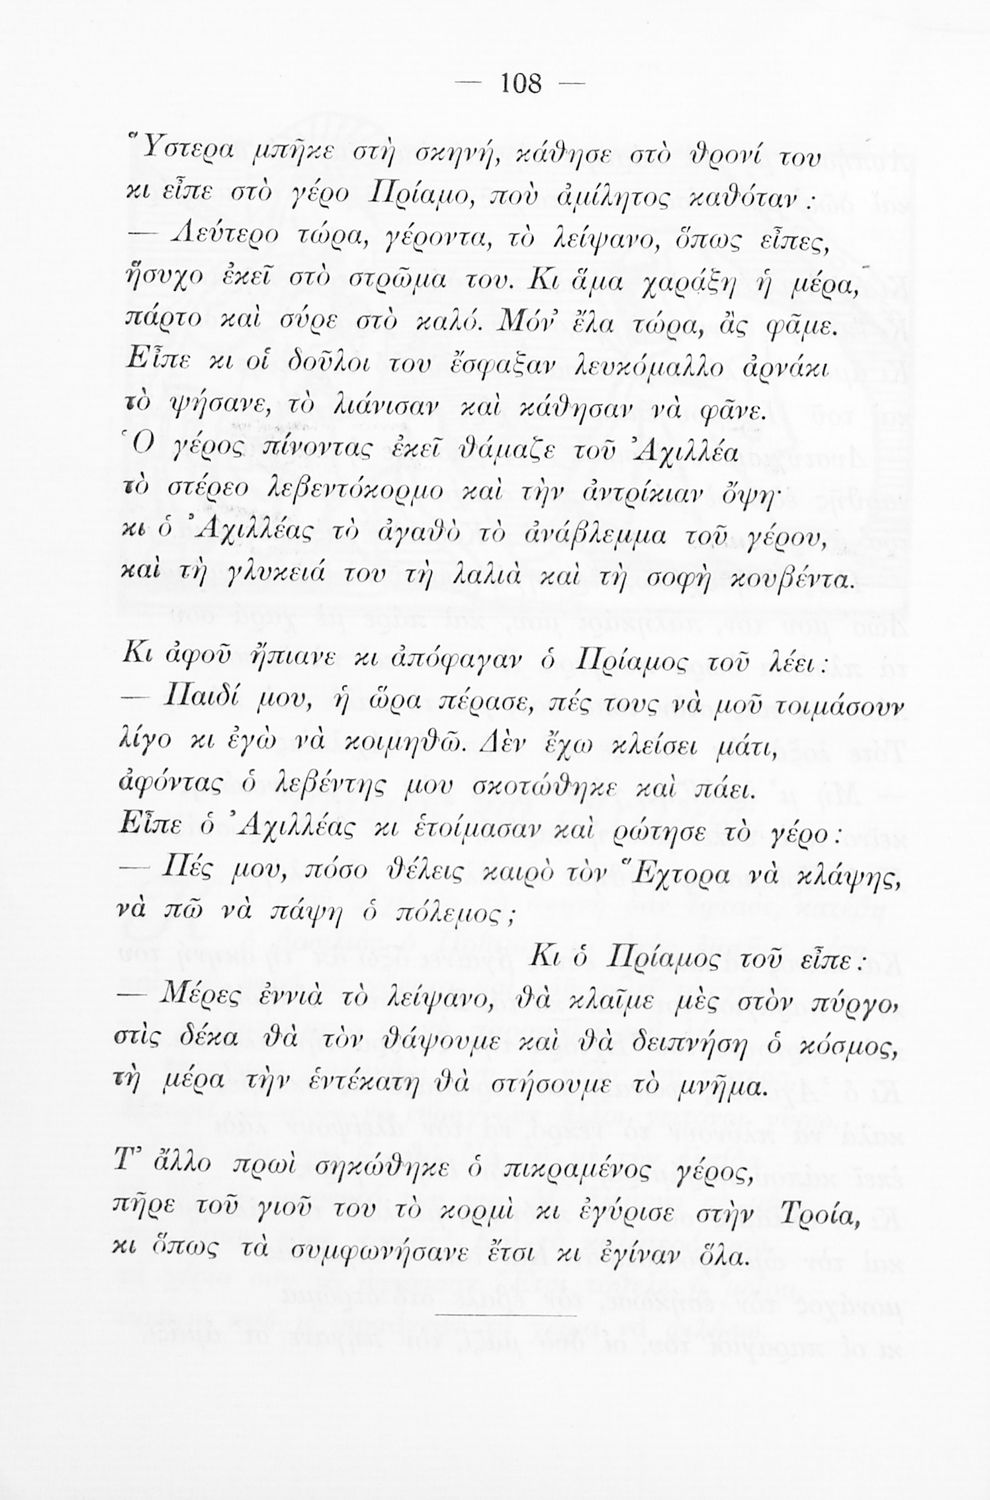 — 108 —
Ὕστερα μπῆκε στὴ σκηνή, κάθησε στὸ θρονί του
κι εἶπε στὸ γέρο Πρίαμο, ποὺ ἀμίλητος καθόταν :
— Λεύτερο τώρα, γέροντα, τὸ λείψανο, ὅπως εἶπες,
ἥσυχο ἐκεῖ στὸ στρῶμα του. Κι ἅμα χαράξη ἡ μέρα,
πάρτο καὶ σύρε στὸ καλό. Μόν' ἔλα τώρα, ἂς φᾶμε.
Εἶπε κι οἱ δοῦλοι του ἔσφαξαν λευκόμαλλο ἀρνάκι
τὸ ψήσανε, τὸ λιάνισαν καὶ κάθησαν νὰ φᾶνε.
Ὁ γέρος πίνοντας ἐκεῖ θάμαζε τοῦ Ἀχιλλέα
τὸ στέρεο λεβεντόκορμο καὶ τὴν ἀντρίκιαν ὄψη·
κι ὁ Ἀχιλλέας τὸ ἀγαθὸ τὸ ἀνάβλεμμα τοῦ γέρου,
καὶ τὴ γλυκειά του τὴ λαλιὰ καὶ τὴ σοφὴ κουβέντα.
Κι ἀφοῦ ἤπιανε κι ἀπόφαγαν ὁ Πρίαμος τοῦ λέει :
— Παιδί μου, ἡ ὥρα πέρασε, πές τους νὰ μοῦ τοιμάσουν
λίγο κι ἐγὼ νὰ κοιμηθῶ. Δὲν ἔχω κλείσει μάτι,
ἀφόντας ὁ λεβέντης μου σκοτώθηκε καὶ πάει.
Εἶπε ὁ Ἀχιλλέας κι ἑτοίμασαν καὶ ρώτησε τὸ γέρο :
— Πές μου, πόσο θέλεις καιρὸ τὸν Ἕχτορα νὰ κλάψης,
νὰ πῶ νὰ πάψη ὁ πόλεμος ;
Κι ὁ Πρίαμος τοῦ εἶπε :
— Μέρες ἐννιὰ τὸ λείψανο, θὰ κλαῖμε μὲς στὸν πύργο,
στὶς δέκα θὰ τὸν θάψουμε καὶ θὰ δειπνήση ὁ κόσμος,
τὴ μέρα τὴν ἑντέκατη θὰ στήσουμε τὸ μνῆμα.
Τ' ἄλλο πρωὶ σηκώθηκε ὁ πικραμένος γέρος,
πῆρε τοῦ γιοῦ του τὸ κορμὶ κι ἐγύρισε στὴν Τροία,
κι ὅπως τὰ συμφωνήσανε ἔτσι κι ἐγίναν ὅλα.